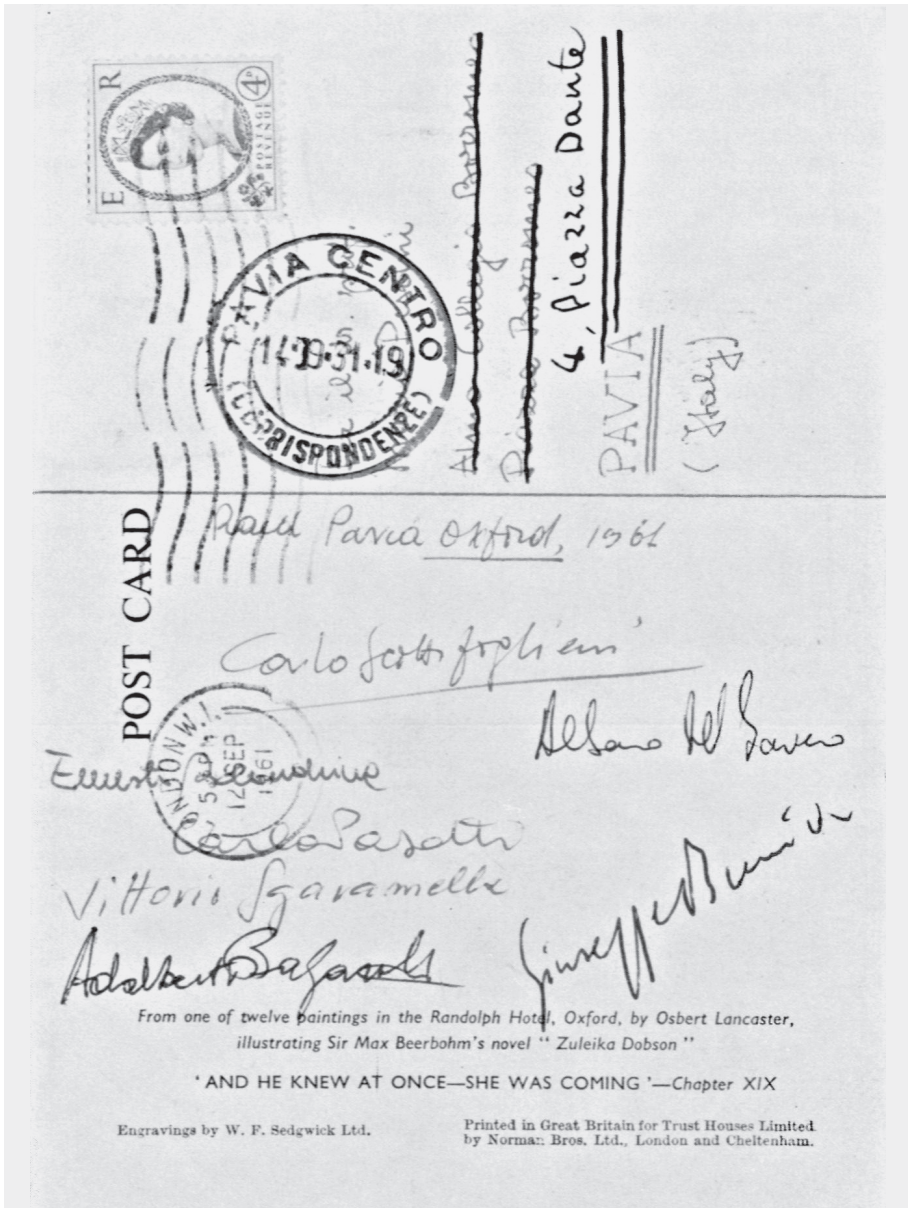 E R
4D
POSTAGE
REVENUE
PAVIA CENTRO
14•19-31•19
(CORRISPONDENZE)
Almo Collegio Borromeo
Piazza Borromeo
4, Piazza Dante
PAVIA
(Italy)
POST CARD
Pavia Oxford, 1961
Carlo
LONDON W.1.
5 PM
12 SEP
1961
Ernesto
Carlo Pasotti
Vittorio Sgaramella
Giuseppe
From one of twelve paintings in the Randolph Hotel, Oxford, by Osbert Lancaster,
illustrating Sir Max Beerbohm's novel “ Zuleika Dobson ”
‘ AND HE KNEW AT ONCE—SHE WAS COMING ’—Chapter XIX
Engravings by W. F. Sedgwick Ltd.
Printed in Great Britain for Trust Houses Limited
by Norman Bros. Ltd., London and Cheltenham.